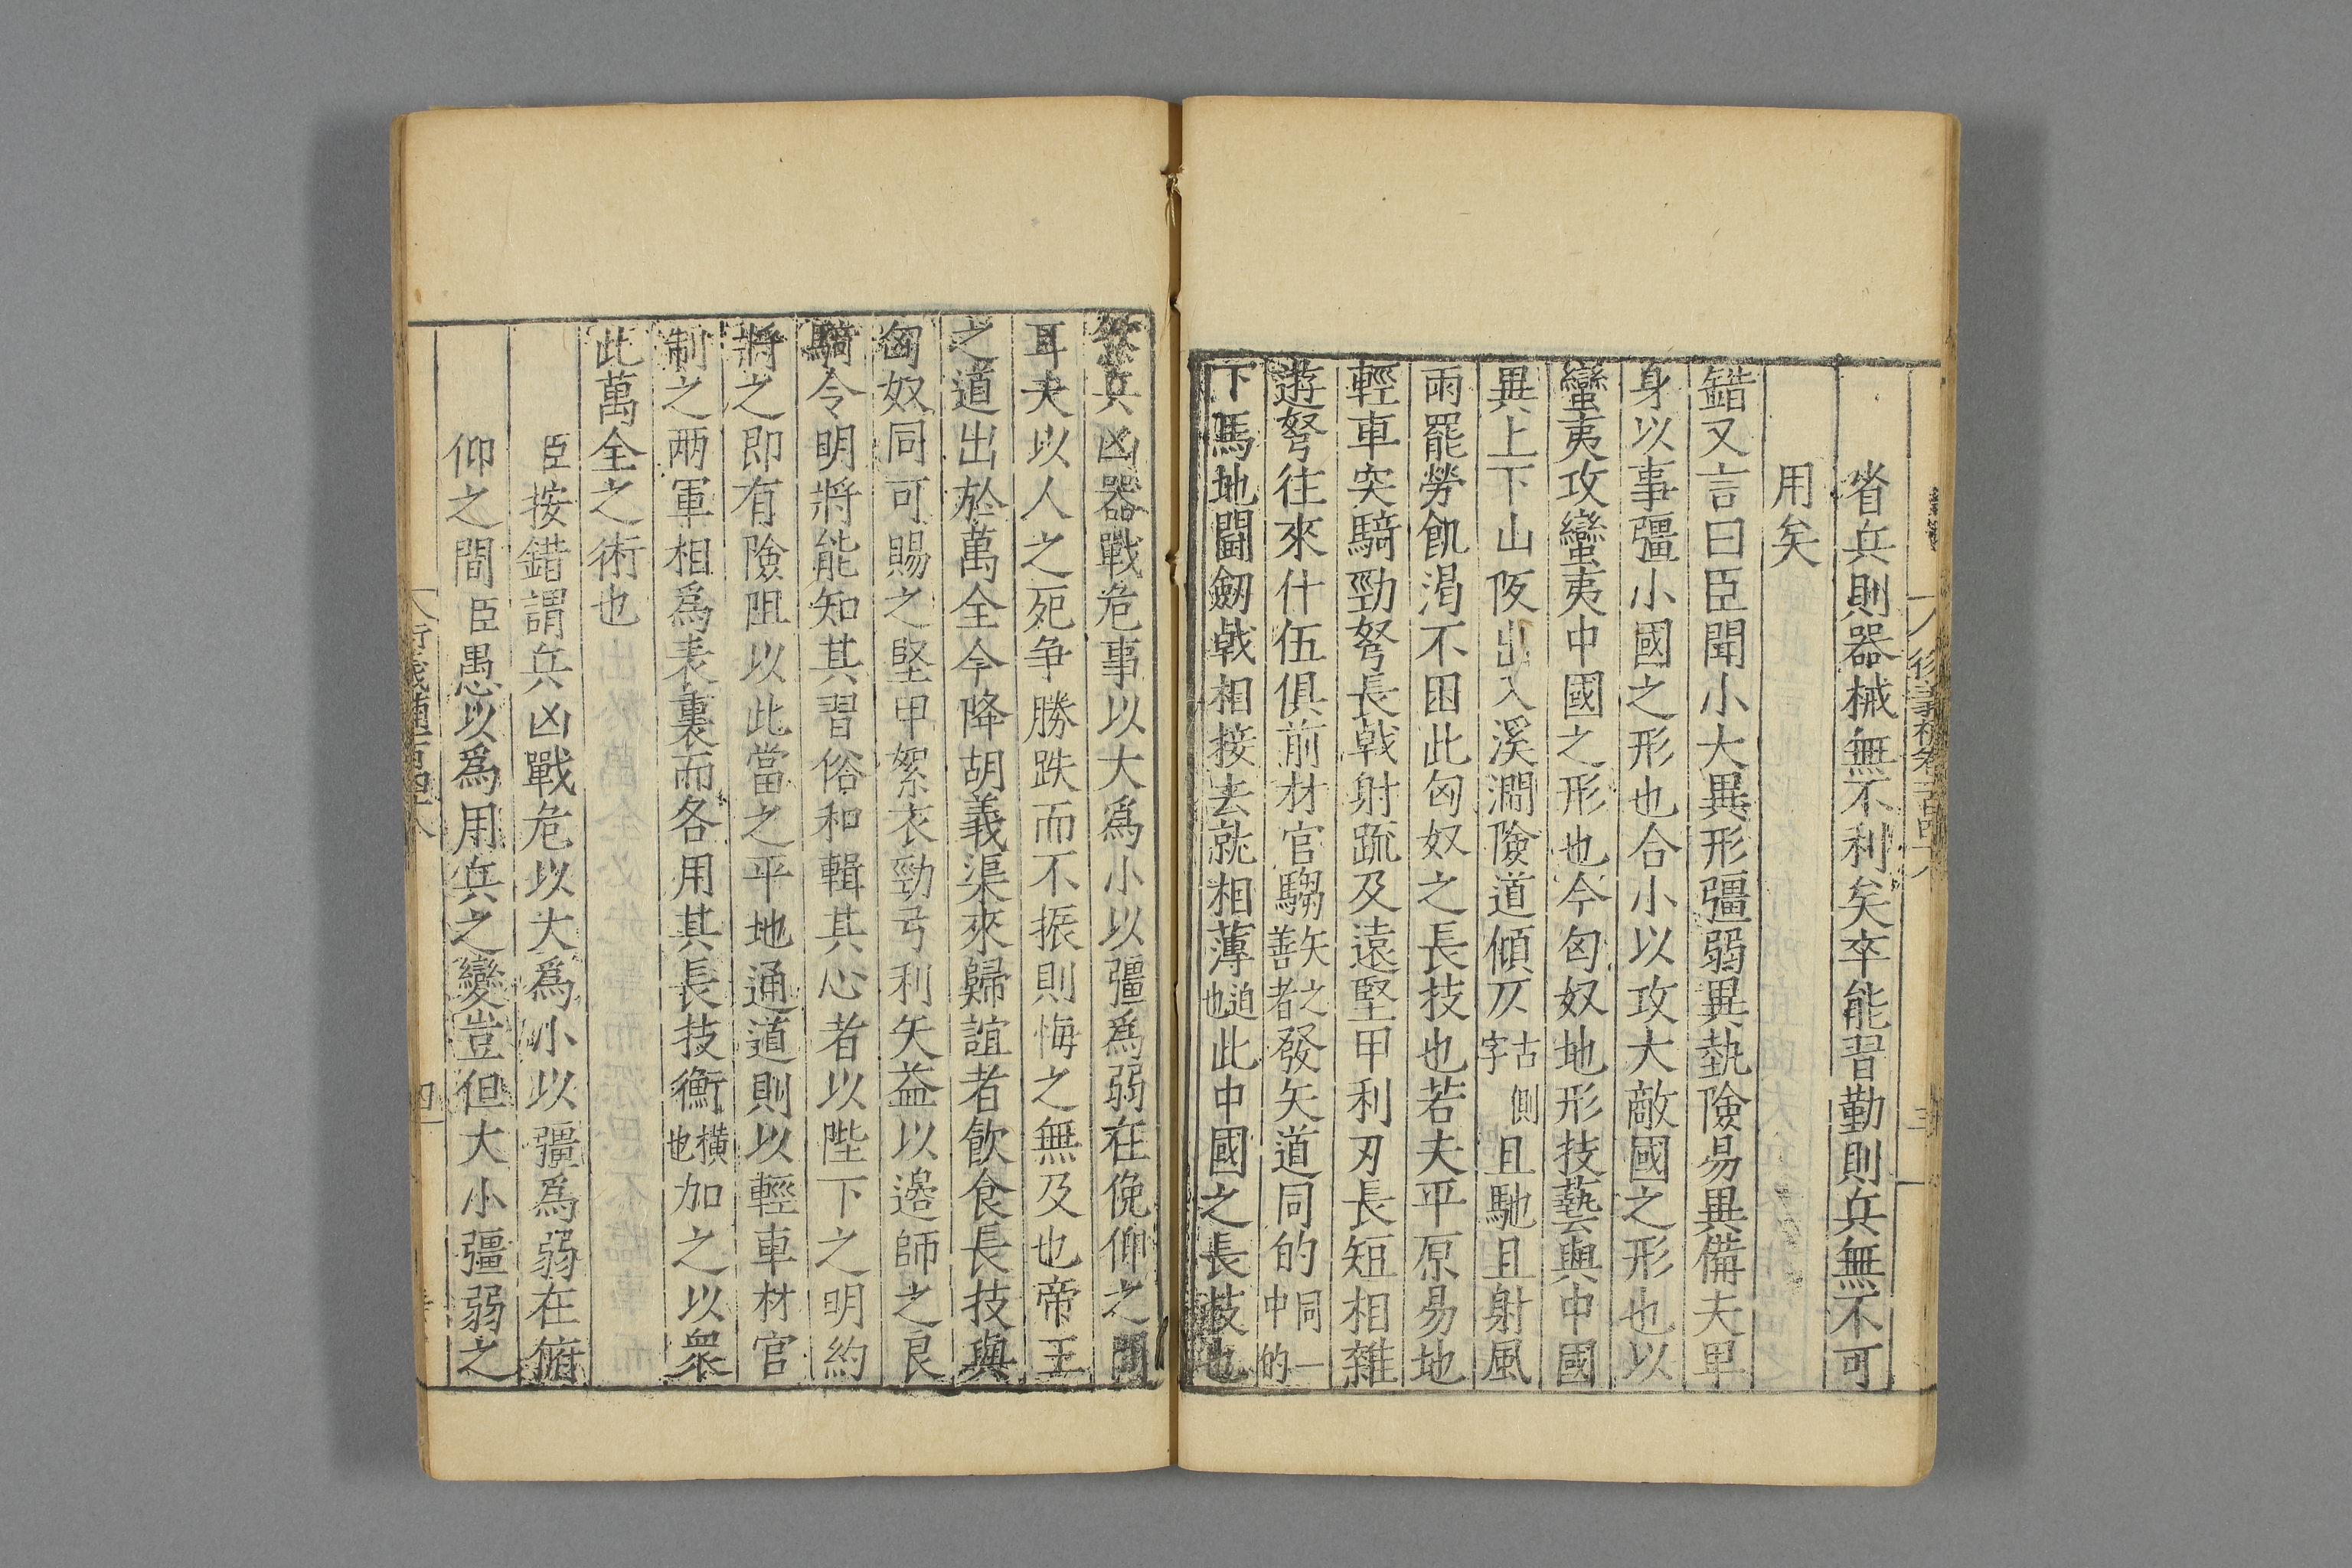 省兵則器械無不利矣卒能習勤則兵無不可
用矣
錯又言曰臣聞小大異形彊弱異埶險易異備夫卑
身以事彊小國之形也合小以攻大敵國之形也以
蠻夷攻蠻夷中國之形也今匈奴地形技藝與中國
異上下山阪出入溪澗險道傾仄古側字且馳且射風
雨罷勞飢渇不困此匈奴之長技也若夫平原易地
輕車突騎勁弩長戟射疏及遠堅甲利刃長短相雜
遊弩往來什伍俱前材官騶矢之善者發矢道同的同一中的
下馬地闘劔戟相接去就相薄迫也此中國之長技也
然兵凶器戰危事以大爲小以彊爲弱在俛仰之間
耳夫以人之死争勝跌而不振則悔之無及也帝王
之道出於萬全今降胡義渠來歸誼者飲食長技與
匈奴同可賜之堅甲絮衣勁弓利矢益以邊師之良
騎令明將能知其習俗和輯其心者以陛下之明約
將之即有險阻以此當之平地通道則以輕車材官
制之兩軍相爲表裏而各用其長技衡橫也加之以衆
此萬全之術也
臣按錯謂兵凶戰危以大爲小以彊爲弱在俯
仰之間臣愚以爲用兵之變豈但大小彊弱之
四